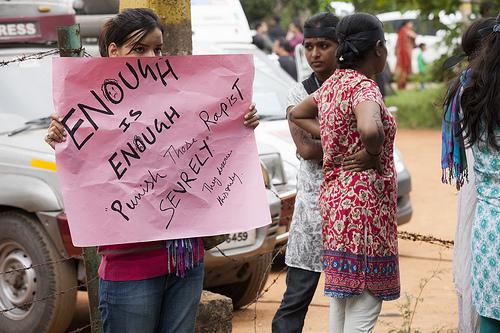 PRESS
ENOUGH
IS
ENOUGH
"Punish Those Rapist
SEVRELY
They deserve
this only.
6459